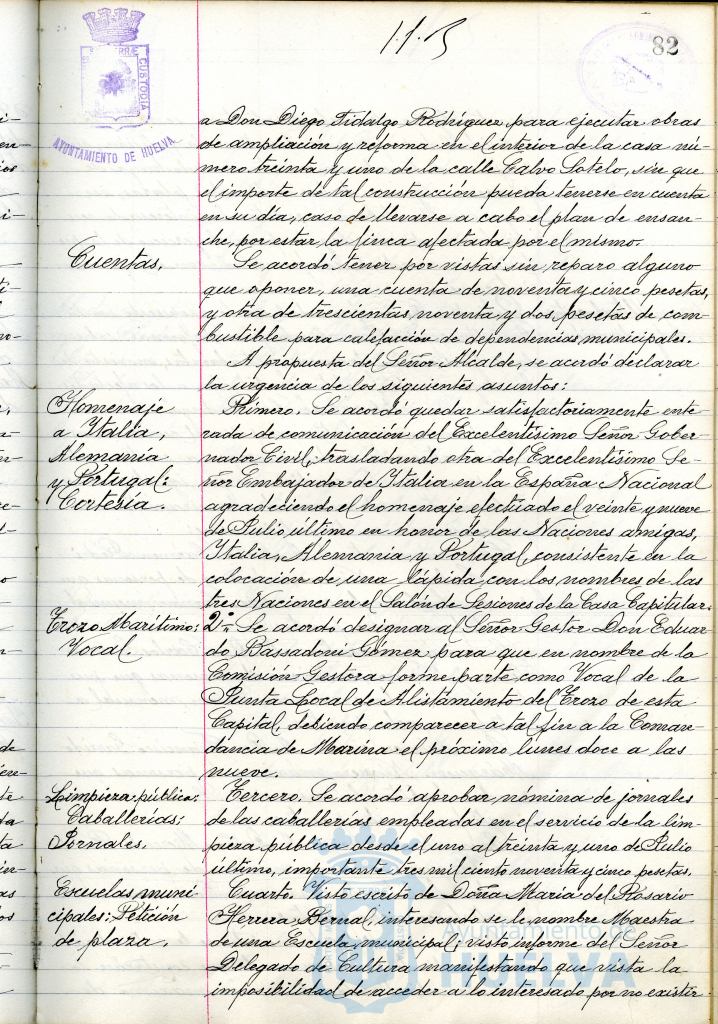 82
CUSTODIA
AYUNTAMIENTO DE HUELVA
a Don Diego Fidalgo Rodríguez para ejecutar obras
de ampliación y reforma en el interior de la casa nú-
mero treinta y uno de la calle Calvo Sotelo, sin que
el importe de tal construcción pueda tenerse en cuenta
en su día, caso de llevarse a cabo el plan de ensan-
che, por estar la finca afectada por el mismo.
Cuentas.
Se acordó tener por vistas sin reparo alguno
que oponer, una cuenta de noventa y cinco pesetas,
y otra de trescientas noventa y dos pesetas de com-
bustible para calefacción de dependencias municipales.
A propuesta del Señor Alcalde, se acordó declarar
la urgencia de los siguientes asuntos:
Homenaje
a Italia,
Alemania
y Portugal:
Cortesía.
Primero. Se acordó quedar satisfactoriamente ente-
rada de comunicación del Excelentísimo Señor Gober-
nador Civil, trasladando otra del Excelentísimo Se-
ñor Embajador de Italia en la España Nacional
agradeciendo el homenaje efectuado el veinte y nueve
de Julio último en honor de las Naciones amigas,
Italia, Alemania y Portugal, consistente en la
colocación de una lápida con los nombres de las
tres Naciones en el Salón de Sesiones de la Casa Capitular.
Trozo Marítimo:
Vocal.
2º Se acordó designar al Señor Gestor Don Eduar-
do Rassadoni Gómez para que en nombre de la
Comisión Gestora forme parte como Vocal de la
Junta Local de Alistamiento del Trozo de esta
Capital, debiendo comparecer a tal fin a la Coman-
dancia de Marina el próximo lunes doce a las
nueve.
Limpieza pública:
Caballerías:
Jornales.
Tercero. Se acordó aprobar nómina de jornales
de las caballerías empleadas en el servicio de la lim-
pieza pública desde el uno al treinta y uno de Julio
último, importante tres mil ciento noventa y cinco pesetas.
Escuelas muni-
cipales: Petición
de plaza.
Cuarto. Visto escrito de Doña María del Rosario
Herrera Bernal, interesando se le nombre Maestra
de una Escuela municipal; visto informe del Señor
Delegado de Cultura manifestando que vista la
imposibilidad de acceder a lo interesado por no existir
Ayuntamiento de
HUELVA